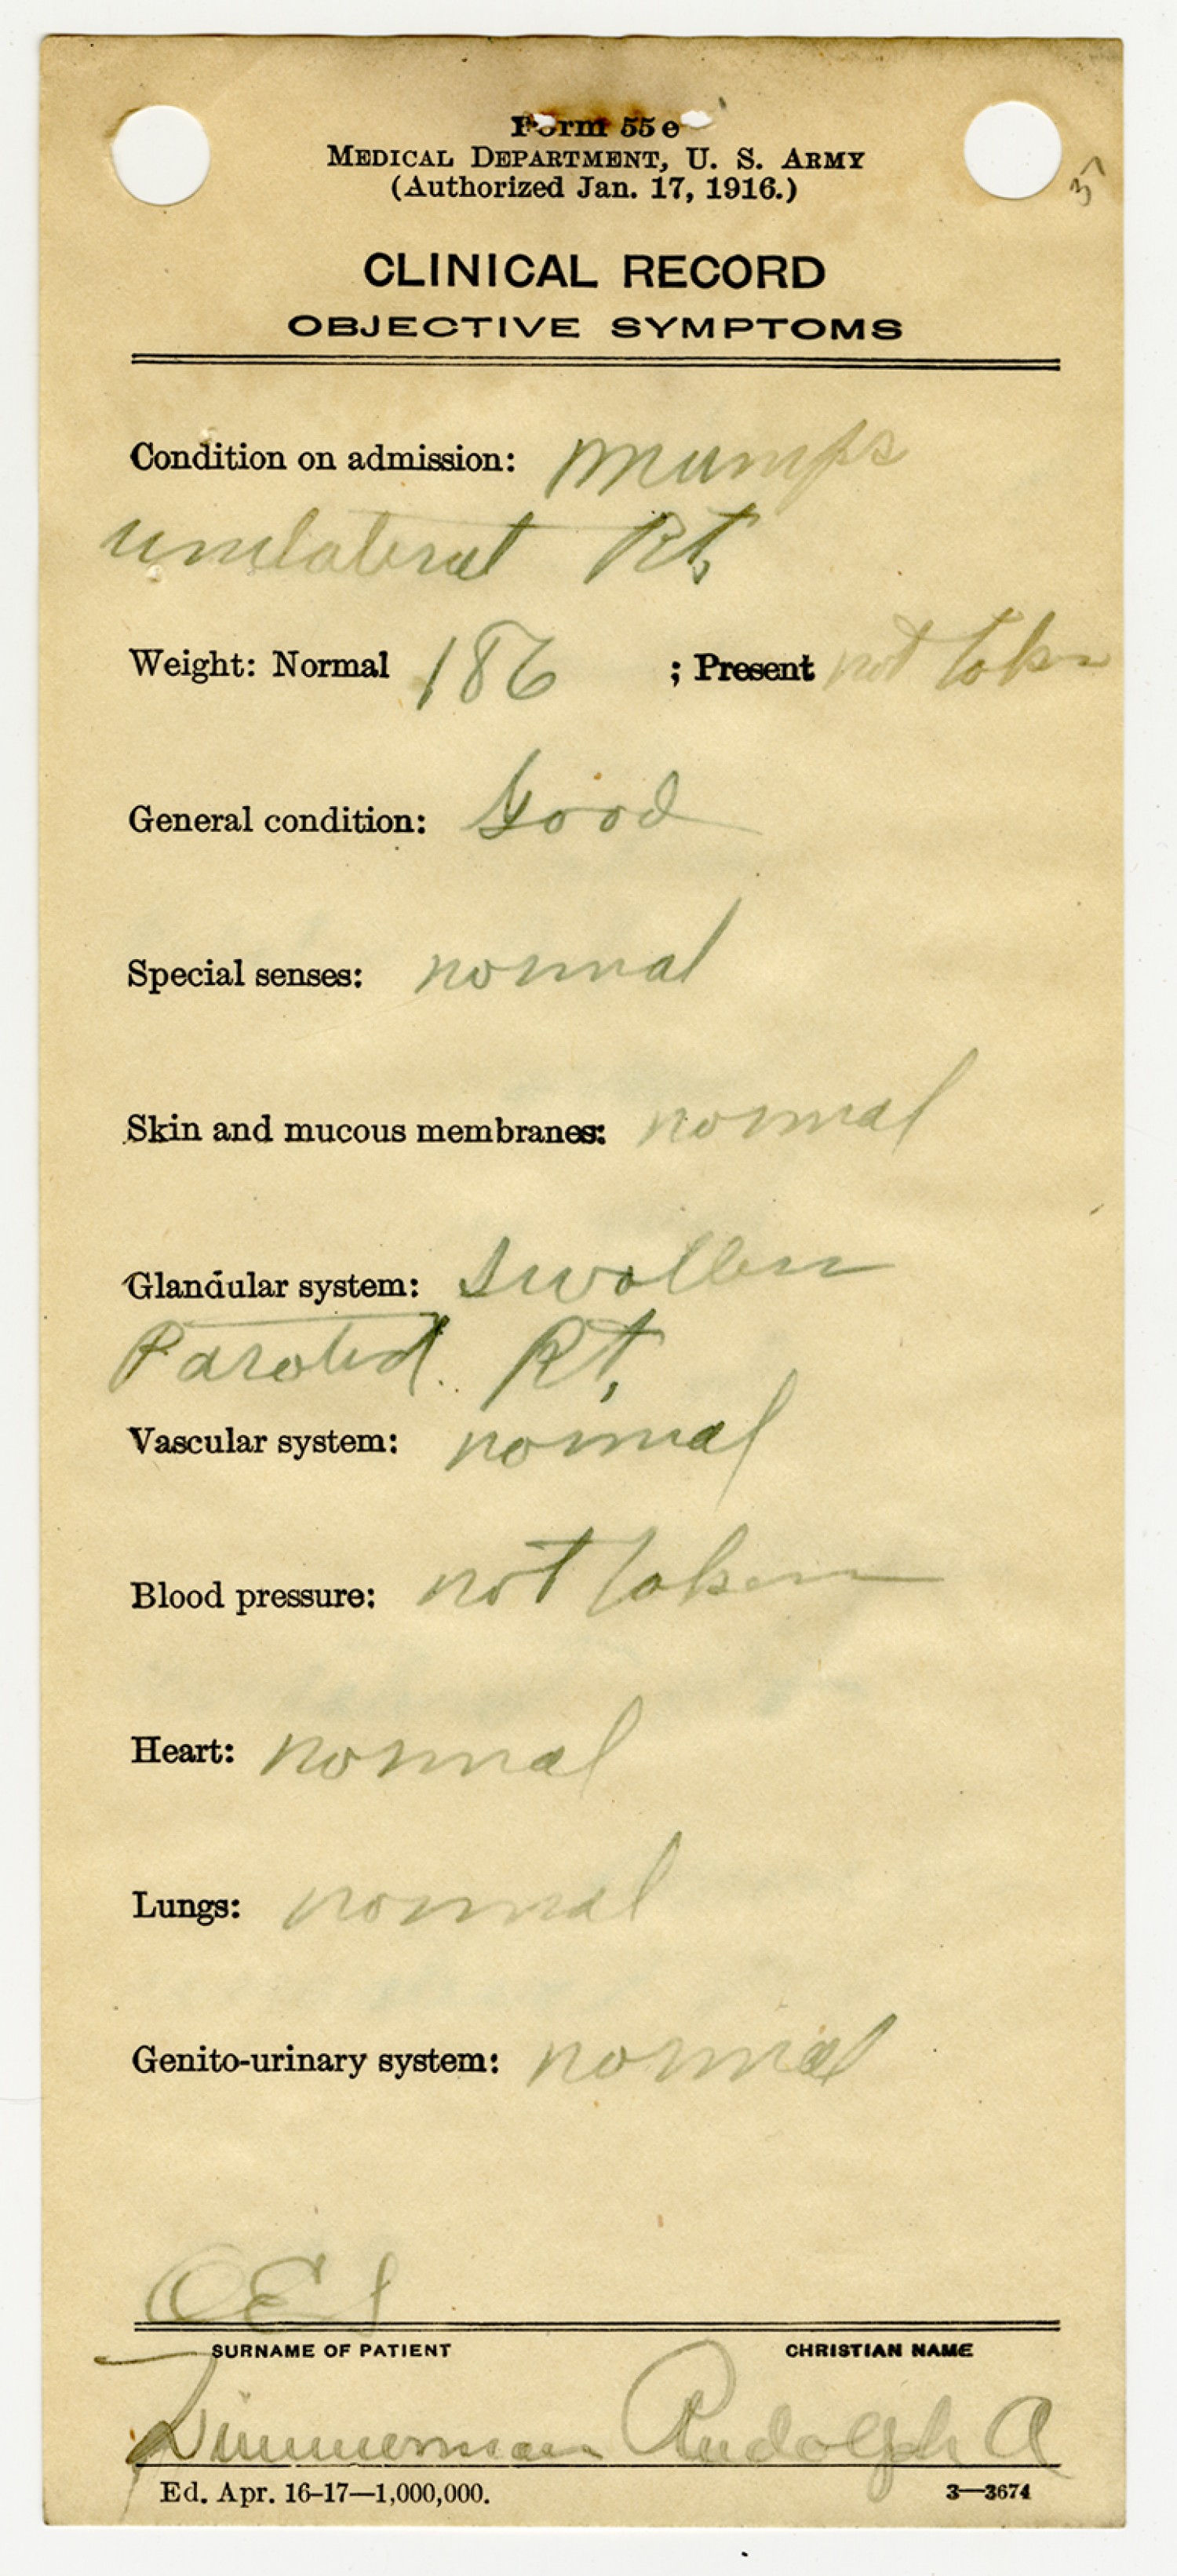 Form 55 e
MEDICAL DEPARTMENT, U. S. ARMY
(Authorized Jan. 17, 1916.)
37
CLINICAL RECORD
OBJECTIVE SYMPTOMS
Condition on admission: Mumps
unilateral Rt,
Weight: Normal 186 ; Present not taken
General condition: Good
Special senses: normal
Skin and mucous membranes: normal
Glandular system: Swollen
Parotid. Rt,
Vascular system: normal
Blood pressure: not taken
Heart: normal
Lungs: normal
Genito-urinary system: normal
SURNAME OF PATIENT CHRISTIAN NAME
Zimmerman Rudolph A
Ed. Apr. 16-17—1,000,000. 3—3674